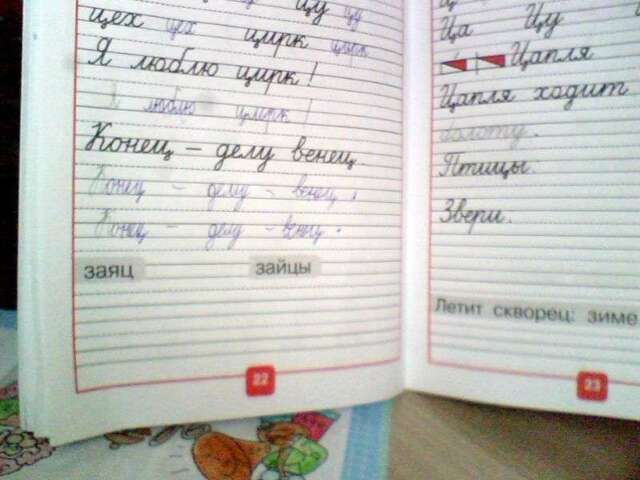 цу цу
цех цех цирк цирк
Я люблю цирк!
Я люблю цирк!
Конец – делу венец.
Конец – делу – венец.
Конец – делу – венец.
заяц зайцы
22
Ца Цу
Цапля
Цапля ходит
болоту.
Птицы.
Звери.
Летит скворец: зиме
23